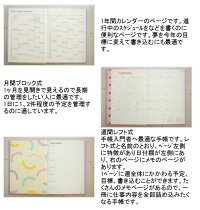 1年間カレンダーのページです。進
行中のスケジュールなどを書くのに
便利なページです。夢を今年の目
標に変えて書き込むにも最適で
す。
月間ブロック式
1ヶ月を見開きで見えるので長期
の管理をしたい人に最適です。
1日に1、2件程度の予定を管理す
るのに適しています。
週間レフト式
手帳入門者へ最適な手帳です。レ
フト式と名前のとおり、ページ左側
に特徴があり日付欄が左側にあ
り、右のページにメモのページがあ
ります。
1ページに週全体にかかわる予定、
目標、書き込むことができます。た
くさんのメモページがあるので、一
冊に仕事内容を全部詰め込みたく
なる手帳です。